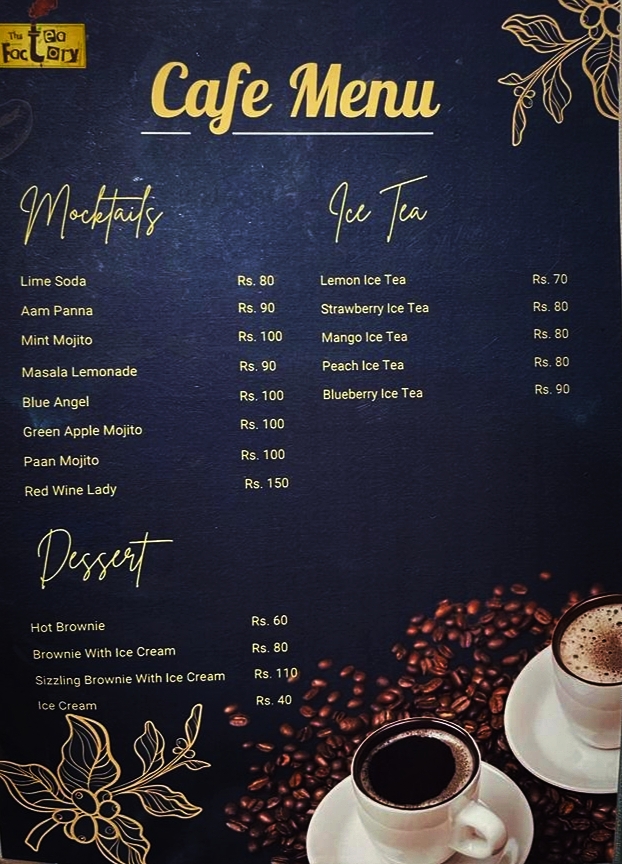 The
tea
Factory
Cafe Menu
Mocktails
Lime Soda Rs. 80
Aam Panna Rs. 90
Mint Mojito Rs. 100
Masala Lemonade Rs. 90
Blue Angel Rs. 100
Green Apple Mojito Rs. 100
Paan Mojito Rs. 100
Red Wine Lady Rs. 150
Ice Tea
Lemon Ice Tea Rs. 70
Strawberry Ice Tea Rs. 80
Mango Ice Tea Rs. 80
Peach Ice Tea Rs. 80
Blueberry Ice Tea Rs. 90
Dessert
Hot Brownie Rs. 60
Brownie With Ice Cream Rs. 80
Sizzling Brownie With Ice Cream Rs. 110
Ice Cream Rs. 40